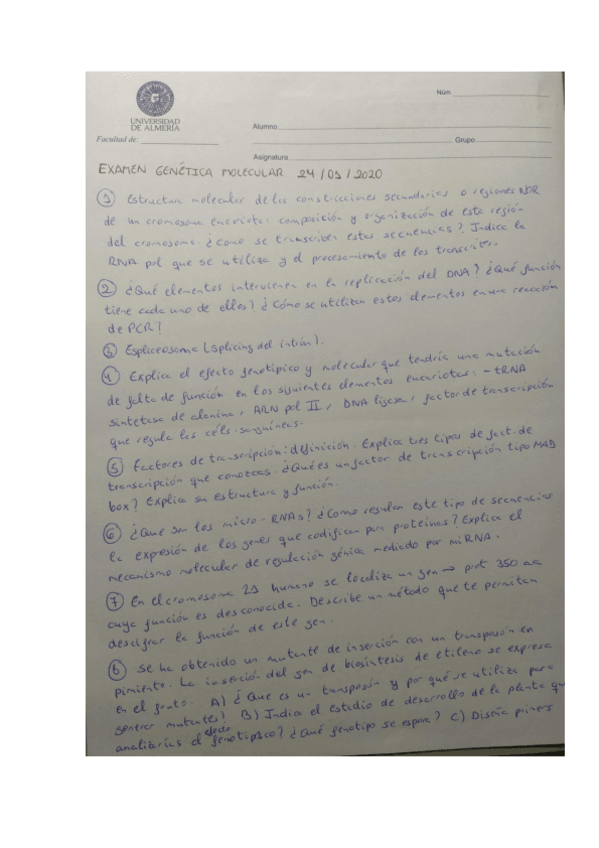 Núm.
UNIVERSIDAD
DE ALMERÍA
Alumno
Facultad de:
Grupo
Asignatura
EXAMEN GENÉTICA MOLECULAR 24/01/2020
① Estructura molecular de las constricciones secundarias o regiones NOR
de un cromosoma eucariota: composición y organización de esta región
del cromosoma ¿Cómo se transcriben estas secuencias? Indica la
RNA pol que se utiliza y el procesamiento de los transcritos.
② ¿Qué elementos intervienen en la replicación del DNA? ¿Qué función
tiene cada uno de ellos? ¿Cómo se utilizan estos elementos en una reacción
de PCR?
③ Espliceosoma (splicing del intrón).
④ Explica el efecto genotípico y molecular que tendría una mutación
de falta de función en los siguientes elementos eucariotas: - tRNA
sintetasa de alanina, ARN pol II, DNA ligasa, factor de transcripción
que regula las céls. sanguíneas.
⑤ Factores de transcripción: definición. Explica tres tipos de fact. de
transcripción que conozcas. ¿Qué es un factor de transcripción tipo MAD
box? Explica su estructura y función.
⑥ ¿Qué son los micro-RNAs? ¿Como regulan este tipo de secuencias
la expresión de los genes que codifican para proteínas? Explica el
mecanismo molecular de regulación génica mediado por miRNA.
⑦ En el cromosoma 21 humano se localiza un gen → prot 350 aa
cuya función es desconocida. Describe un método que te permita
descifrar la función de este gen.
⑧ Se ha obtenido un mutante de inserción con un transposón en
pimiento. La inserción del gen de biosíntesis de etileno se expresa
en el fruto. A) ¿Que es un transposón y por qué se utiliza para
generar mutantes? B) Indica el estadio de desarrollo de la planta que
analizarías el efecto genotípico? ¿Qué genotipo se espera? C) Diseña primers